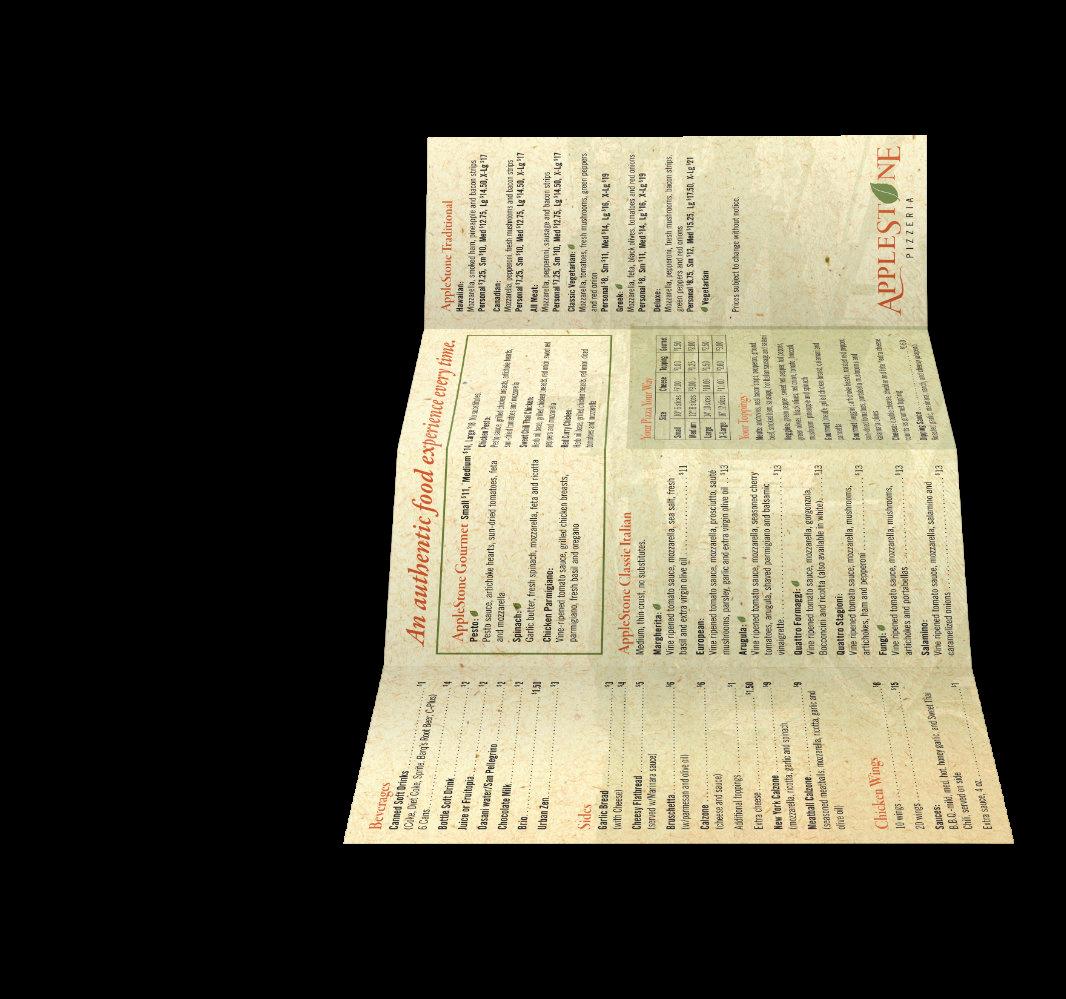 Beverages
Canned Soft Drinks
(Coke, Diet Coke, Sprite, Barq's Root Beer, C-Plus) $1
6 Cans $4
Bottle Soft Drink $2
Juice or Frutopia $2
Dasani water/San Pellegrino $2
Chocolate Milk $2
Brio $1.50
Urban Zen $3
Sides
Garlic Bread $3
(with Cheese) $4
Cheesy Flatbread $5
(served w/Marinara sauce)
Bruschetta $6
(w/parmesan and olive oil)
Calzone $6
(cheese and sauce)
Additional toppings $1
Extra cheese $1.50
New York Calzone $9
(mozzarella, ricotta, garlic and spinach,
Meatball Calzone $9
(seasoned meatballs, mozzarella, ricotta, garlic and
olive oil)
Chicken Wings
10 wings $8
20 wings $15
Sauces:
B.B.Q., mild, med, hot, honey garlic, and Sweet Thai
Chili, served on side
Extra sauce, 4 oz. $1
An authentic food experience every time.
AppleStone Gourmet Small $11, Medium $14, Large
Pesto:
Pesto sauce, artichoke hearts, sun-dried tomatoes, feta
and mozzarella
Spinach:
Garlic butter, fresh spinach, mozzarella, feta and ricotta
Chicken Parmigiano:
Vine-ripened tomato sauce, grilled chicken breasts,
parmigiano, fresh basil and oregano
Chicken Pesto:
Pesto sauce, grilled chicken breasts, artichoke hearts,
sun-dried tomatoes and mozzarella
Sweet Chili Thai Chicken:
peppers and mozzarella
Red Curry Chicken:
tomatoes and mozzarella
AppleStone Classic Italian
Medium, thin crust, no substitutes.
Margherita:
Vine ripened tomato sauce, mozzarella, sea salt, fresh
basil and extra virgin olive oil $11
European:
Vine ripened tomato sauce, mozzarella, prosciutto, sauté
mushrooms, parsley, garlic and extra virgin olive oil $13
Arugula:
Vine ripened tomato sauce, mozzarella, seasoned cherry
tomatoes, arugula, shaved parmigiano and balsamic
vinaigrette $13
Quattro Formaggi:
Vine ripened tomato sauce, mozzarella, gorgonzola,
Bocconcini and ricotta (also available in white) $13
Quattro Stagioni:
Vine ripened tomato sauce, mozzarella, mushrooms,
artichokes, ham and pepperoni $13
Fungi:
Vine ripened tomato sauce, mozzarella, mushrooms,
artichokes and portabellas $13
Salamino:
Vine ripened tomato sauce, mozzarella, salamino and
caramelized onions $13
Your Pizza Your Way
Size Cheese Topping Gourmet
Small
Medium
Large
X-Large
Your Toppings
Dipping Sauce
AppleStone Traditional
Hawaiian:
Mozzarella, smoked ham, pineapple and bacon strips
Personal $7.25, Sm $10, Med $12.75, Lg $14.50, X-Lg $17
Canadian:
Mozzarella, pepperoni, fresh mushrooms and bacon strips
Personal $7.25, Sm $10, Med $12.75, Lg $14.50, X-Lg $17
All Meat:
Mozzarella, pepperoni, sausage and bacon strips
Personal $7.25, Sm $10, Med $12.75, Lg $14.50, X-Lg $17
Classic Vegetarian:
Mozzarella, tomatoes, fresh mushrooms, green peppers
and red onion
Personal $8, Sm $11, Med $14, Lg $16, X-Lg $19
Greek:
Mozzarella, feta, black olives, tomatoes and red onions
Personal $8, Sm $11, Med $14, Lg $16, X-Lg $19
Deluxe:
Mozzarella, pepperoni, fresh mushrooms, bacon strips,
green peppers and red onions
Personal $8.75, Sm $12, Med $15.25, Lg $17.50, X-Lg $21
Vegetarian
Prices subject to change without notice.
APPLESTONE
PIZZERIA